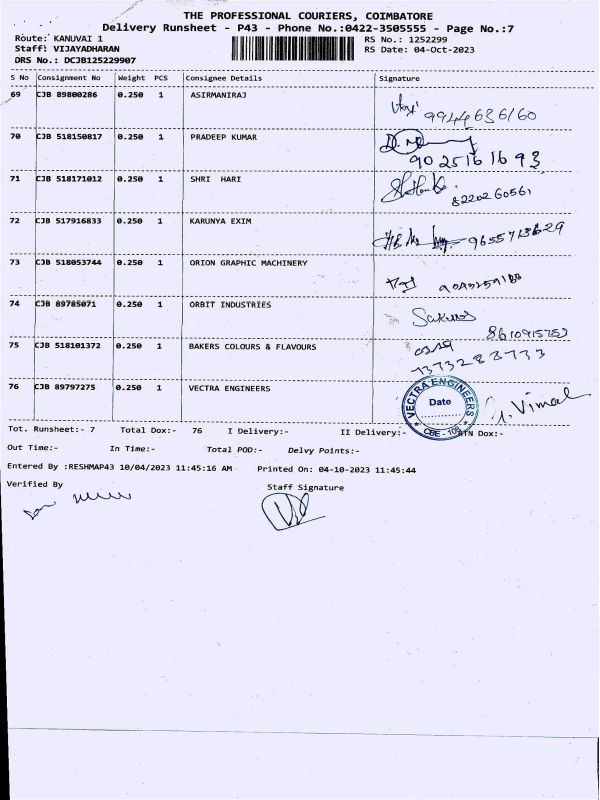 THE PROFESSIONAL COURIERS, COIMBATORE
Delivery Runsheet - P43 - Phone No.:0422-3505555 - Page No.:7
Route: KANUVAI 1 RS No.: 1252299
Staff: VIJAYADHARAN RS Date: 04-Oct-2023
DRS No.: DCJB125229907
S No Consignment No Weight PCS Consignee Details Signature
69 CJB 89800286 0.250 1 ASIRMANIRAJ
9944636160
70 CJB 518150817 0.250 1 PRADEEP KUMAR
9025161693
71 CJB 518171012 0.250 1 SHRI HARI
8220260561
72 CJB 517916833 0.250 1 KARUNYA EXIM
9655713629
73 CJB 518053744 0.250 1 ORION GRAPHIC MACHINERY
74 CJB 89785071 0.250 1 ORBIT INDUSTRIES
8610915753
75 CJB 518101372 0.250 1 BAKERS COLOURS & FLAVOURS
7373283733
76 CJB 89797275 0.250 1 VECTRA ENGINEERS
VECTRA ENGINEERS
Date
CBE - 108
Vimal
Tot. Runsheet:- 7 Total Dox:- 76 I Delivery:- II Delivery:- RTN Dox:-
Out Time:- In Time:- Total POD:- Delvy Points:-
Entered By :RESHMAP43 10/04/2023 11:45:16 AM Printed On: 04-10-2023 11:45:44
Verified By Staff Signature